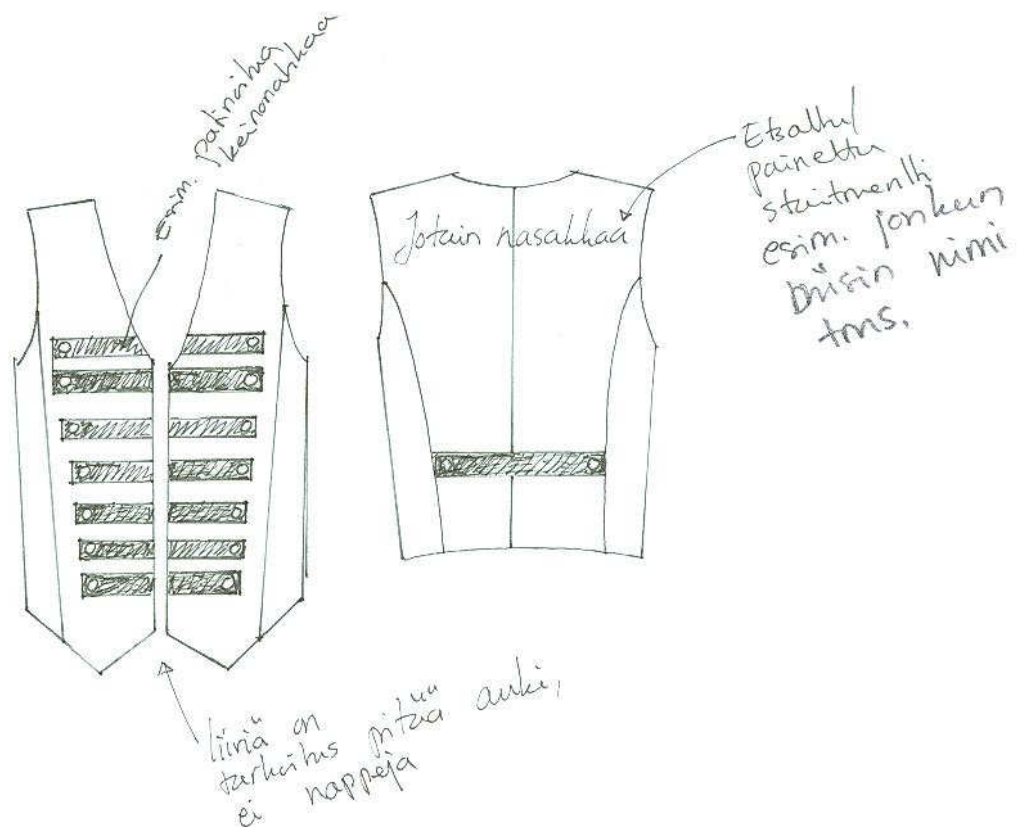 Esim. patinoitua
keinonahkaa
Jotain nasakkaa
Etsattu/
painettu
staitmentti
esim. jonkun
biisin nimi
tms.
liiviä on
tarkoitus pitää auki,
ei nappeja